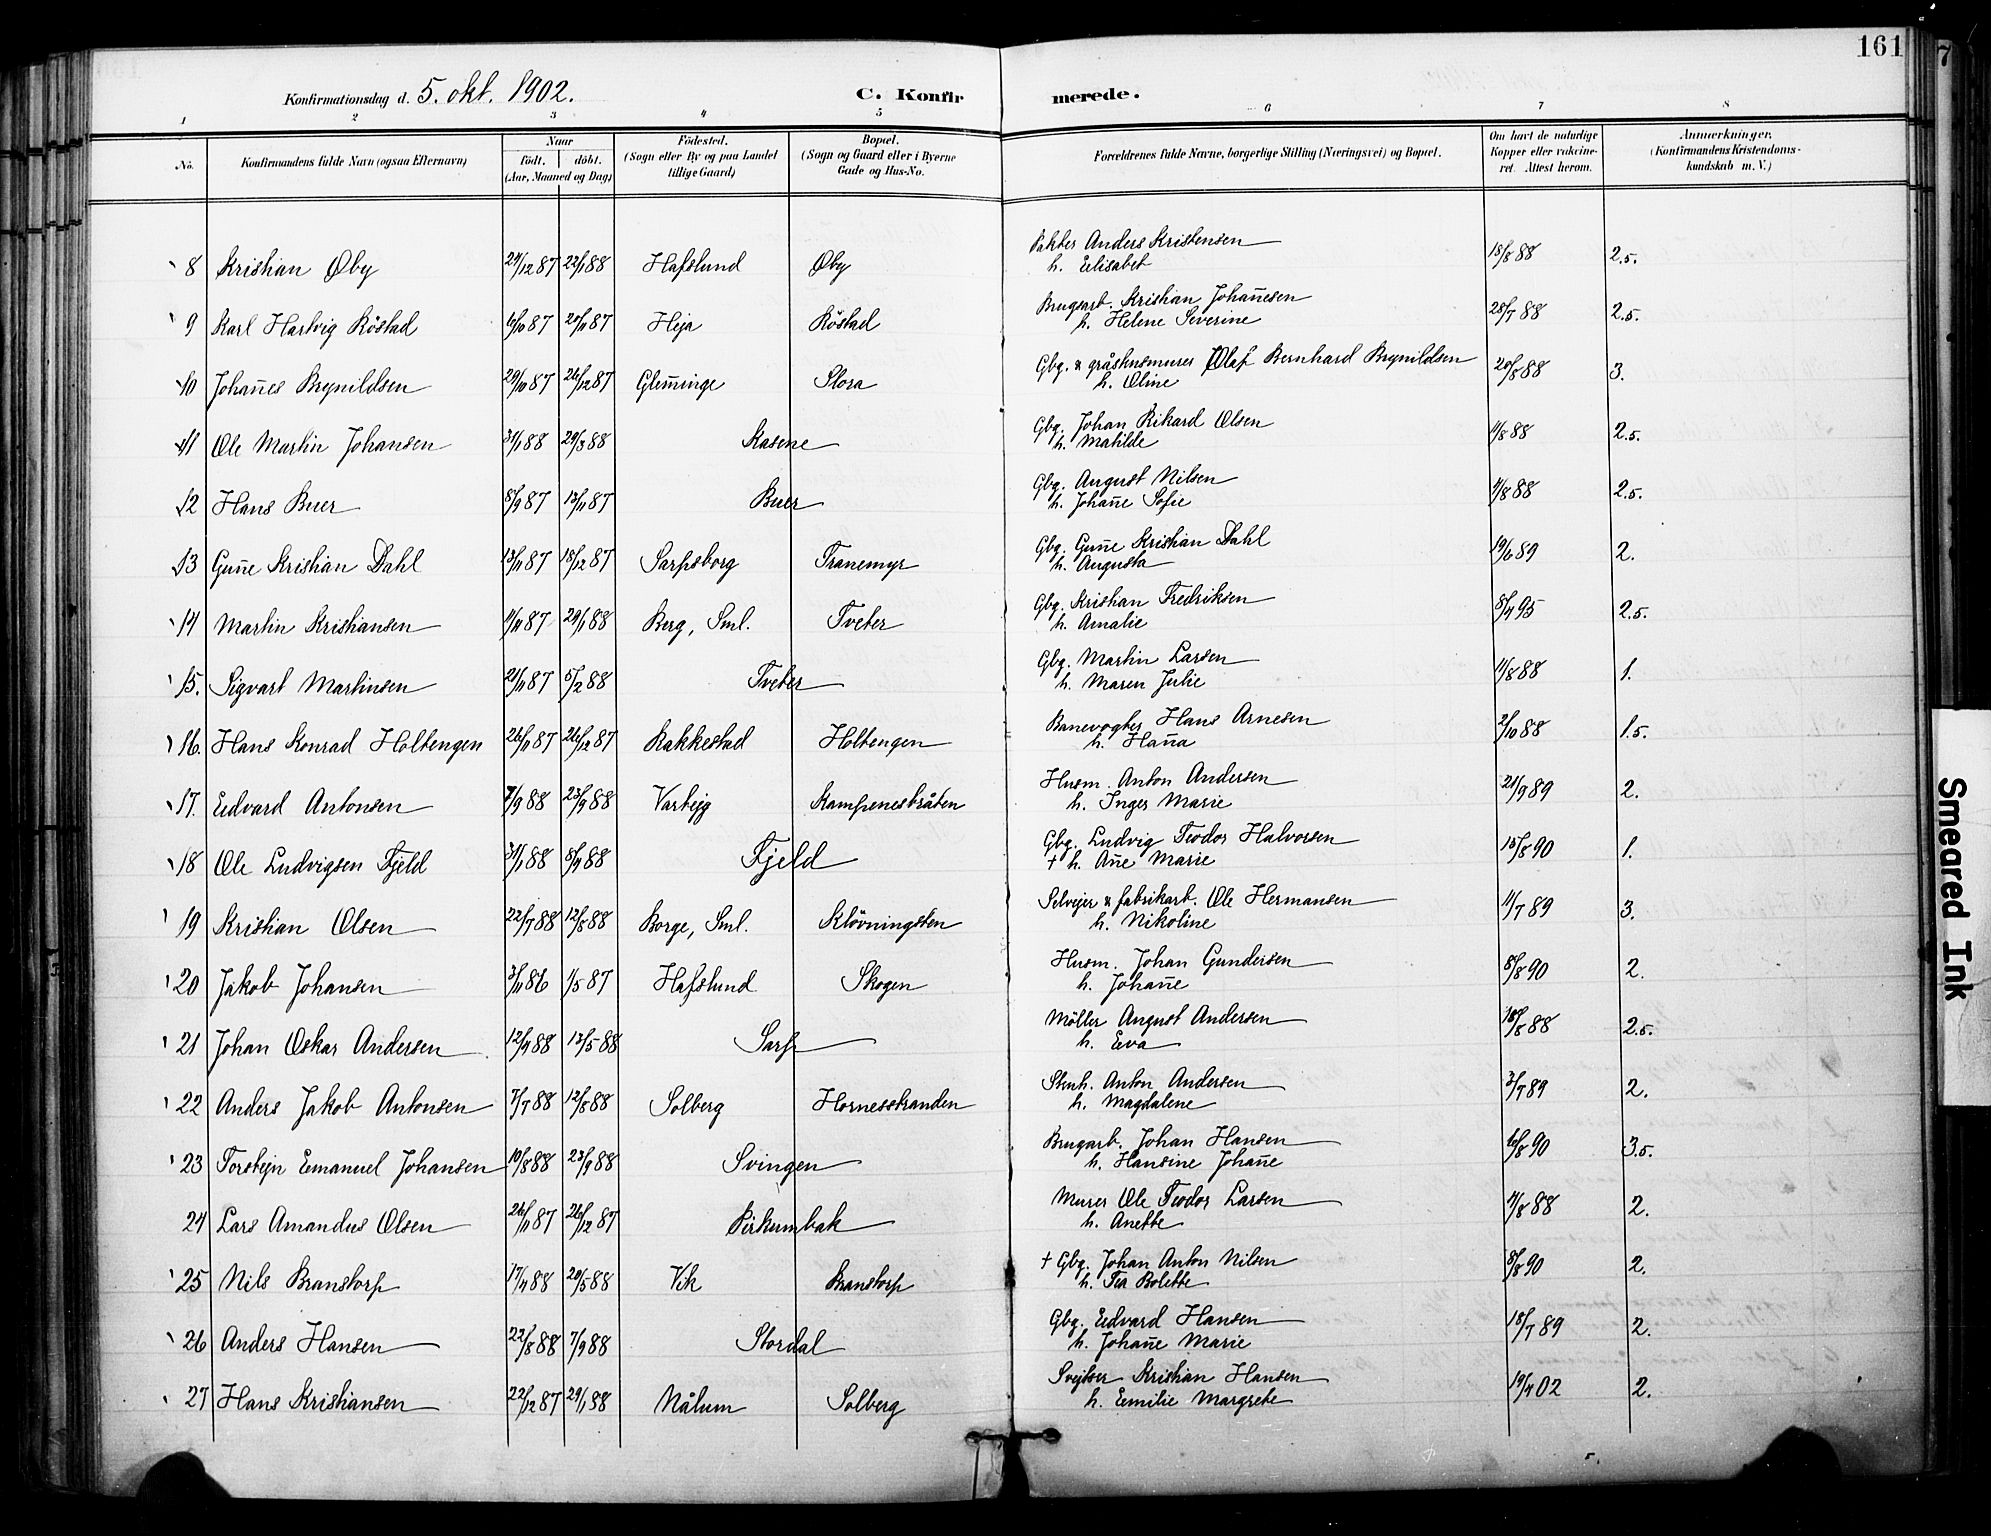 161
Konfirmationsdag d. 5. okt. 1902.
C. Konfirmerede.
1 2 3 4 5 6 7 8
No.
Konfirmandens fulde Navn (ogsaa Efternavn)
Naar
født. døbt.
(Aar, Maaned og Dag)
Fødested.
(Sogn eller By og paa Landet
tillige Gaard)
Bopæl.
(Sogn og Gaard eller i Byerne
Gade og Hus-No.
Forældrenes fulde Navne, borgerlige Stilling (Næringsvei) og Bopæl.
Om havt de naturlige
Kopper eller vakcine-
ret. Attest herom.
Anmerkninger.
(Konfirmandens Kristendoms-
kundskab m. V.)
8 Kristian Øby 24/12 87 22/1 88 Hafslund Øby Pakter Anders Kristensen 18/8 88 2.5.
h. Elisabet
9 Karl Hartvig Röstad 6/10 87 20/11 87 Heja Röstad Brugsarb. Kristian Johan̄esen 28/7 88 2.5.
h. Helene Severine
10 Johan̄es Brynildsen 29/10 87 26/12 87 Glem̄inge Slora Gbg. & gråstensmurer Olaf Bernhard Brynildsen 20/8 88 3.
h. Oline
11 Ole Martin Johansen 31/1 88 29/3 88 Kasene Gbg. Johan Rikard Olsen 4/8 88 2.5.
h. Matilde
12 Hans Buer 8/9 87 13/11 87 Buer Gbg. August Nilsen 4/8 88 2.5.
h. Johan̄e Sofie
13 Gun̄e Kristian Dahl 13/11 87 18/12 87 Sarpsborg Tranemyr Gbg. Gun̄e Kristian Dahl 19/6 89 2.
h. Augusta
14 Martin Kristiansen 4/11 87 29/1 88 Berg, Sml. Tveter Gbg. Kristian Fredriksen 8/4 95 2.5.
h. Amalie
15. Sigvart Martinsen 21/11 87 5/2 88 Tveter Gbg. Martin Larsen 11/8 88 1.
h. Maren Julie
16. Hans Konrad Holtengen 26/11 87 26/12 87 Rakkestad Holtengen Banevogter Hans Arnesen 2/10 88 1.5.
h. Han̄a
17. Edvard Antonsen 7/9 88 23/9 88 Varteig Kampenesbråten Husm. Anton Andersen 21/9 89 2.
h. Inger Marie
18 Ole Ludvigsen Fjeld 31/1 88 8/4 88 Fjeld Gbg. Ludvig Teodor Halvorsen 15/8 90 1.
+ h. An̄e Marie
19 Kristian Olsen 22/7 88 12/8 88 Borge, Sml. Klövningsten Selvejer & fabrikarb. Ole Hermansen 11/7 89 3.
h. Nikoline
20 Jakob Johansen 3/11 86 1/5 87 Hafslund Skogen Husm. Johan Gundersen 8/8 90 2.
h. Johan̄e
21 Johan Oskar Andersen 12/4 88 13/5 88 Sarp Möller August Andersen 18/8 88 2.5.
h. Eva
22 Anders Jakob Antonsen 7/7 88 12/8 88 Solberg Hornesstranden Stenh. Anton Andersen 3/7 89 2.
h. Magdalene
23 Torstejn Emanuel Johansen 10/8 88 23/9 88 Svingen Brugarb. Johan Hansen 6/8 90 3.5.
h. Hansine Johan̄e
24 Lars Amandus Olsen 26/11 87 26/12 87 Pirkumbak Murer Ole Teodor Larsen 4/8 88 2.
h. Anette
25 Nils Branstorp 17/4 88 20/5 88 Vik Branstorp + Gbg. Johan Anton Nilsen 8/8 90 2.
h. Tea Bolette
26 Anders Hansen 22/8 88 7/9 88 Stordal Gbg. Edvard Hansen 18/7 89 2.
h. Johan̄e Marie
27 Hans Kristiansen 22/12 87 29/1 88 Målum Solberg Svejtser Kristian Hansen 19/4 02 2.
h. Emilie Margrete
Smeared Ink